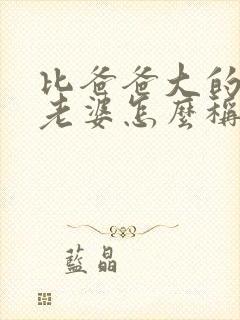 比爸爸大的
老婆怎麼稱
藍晶